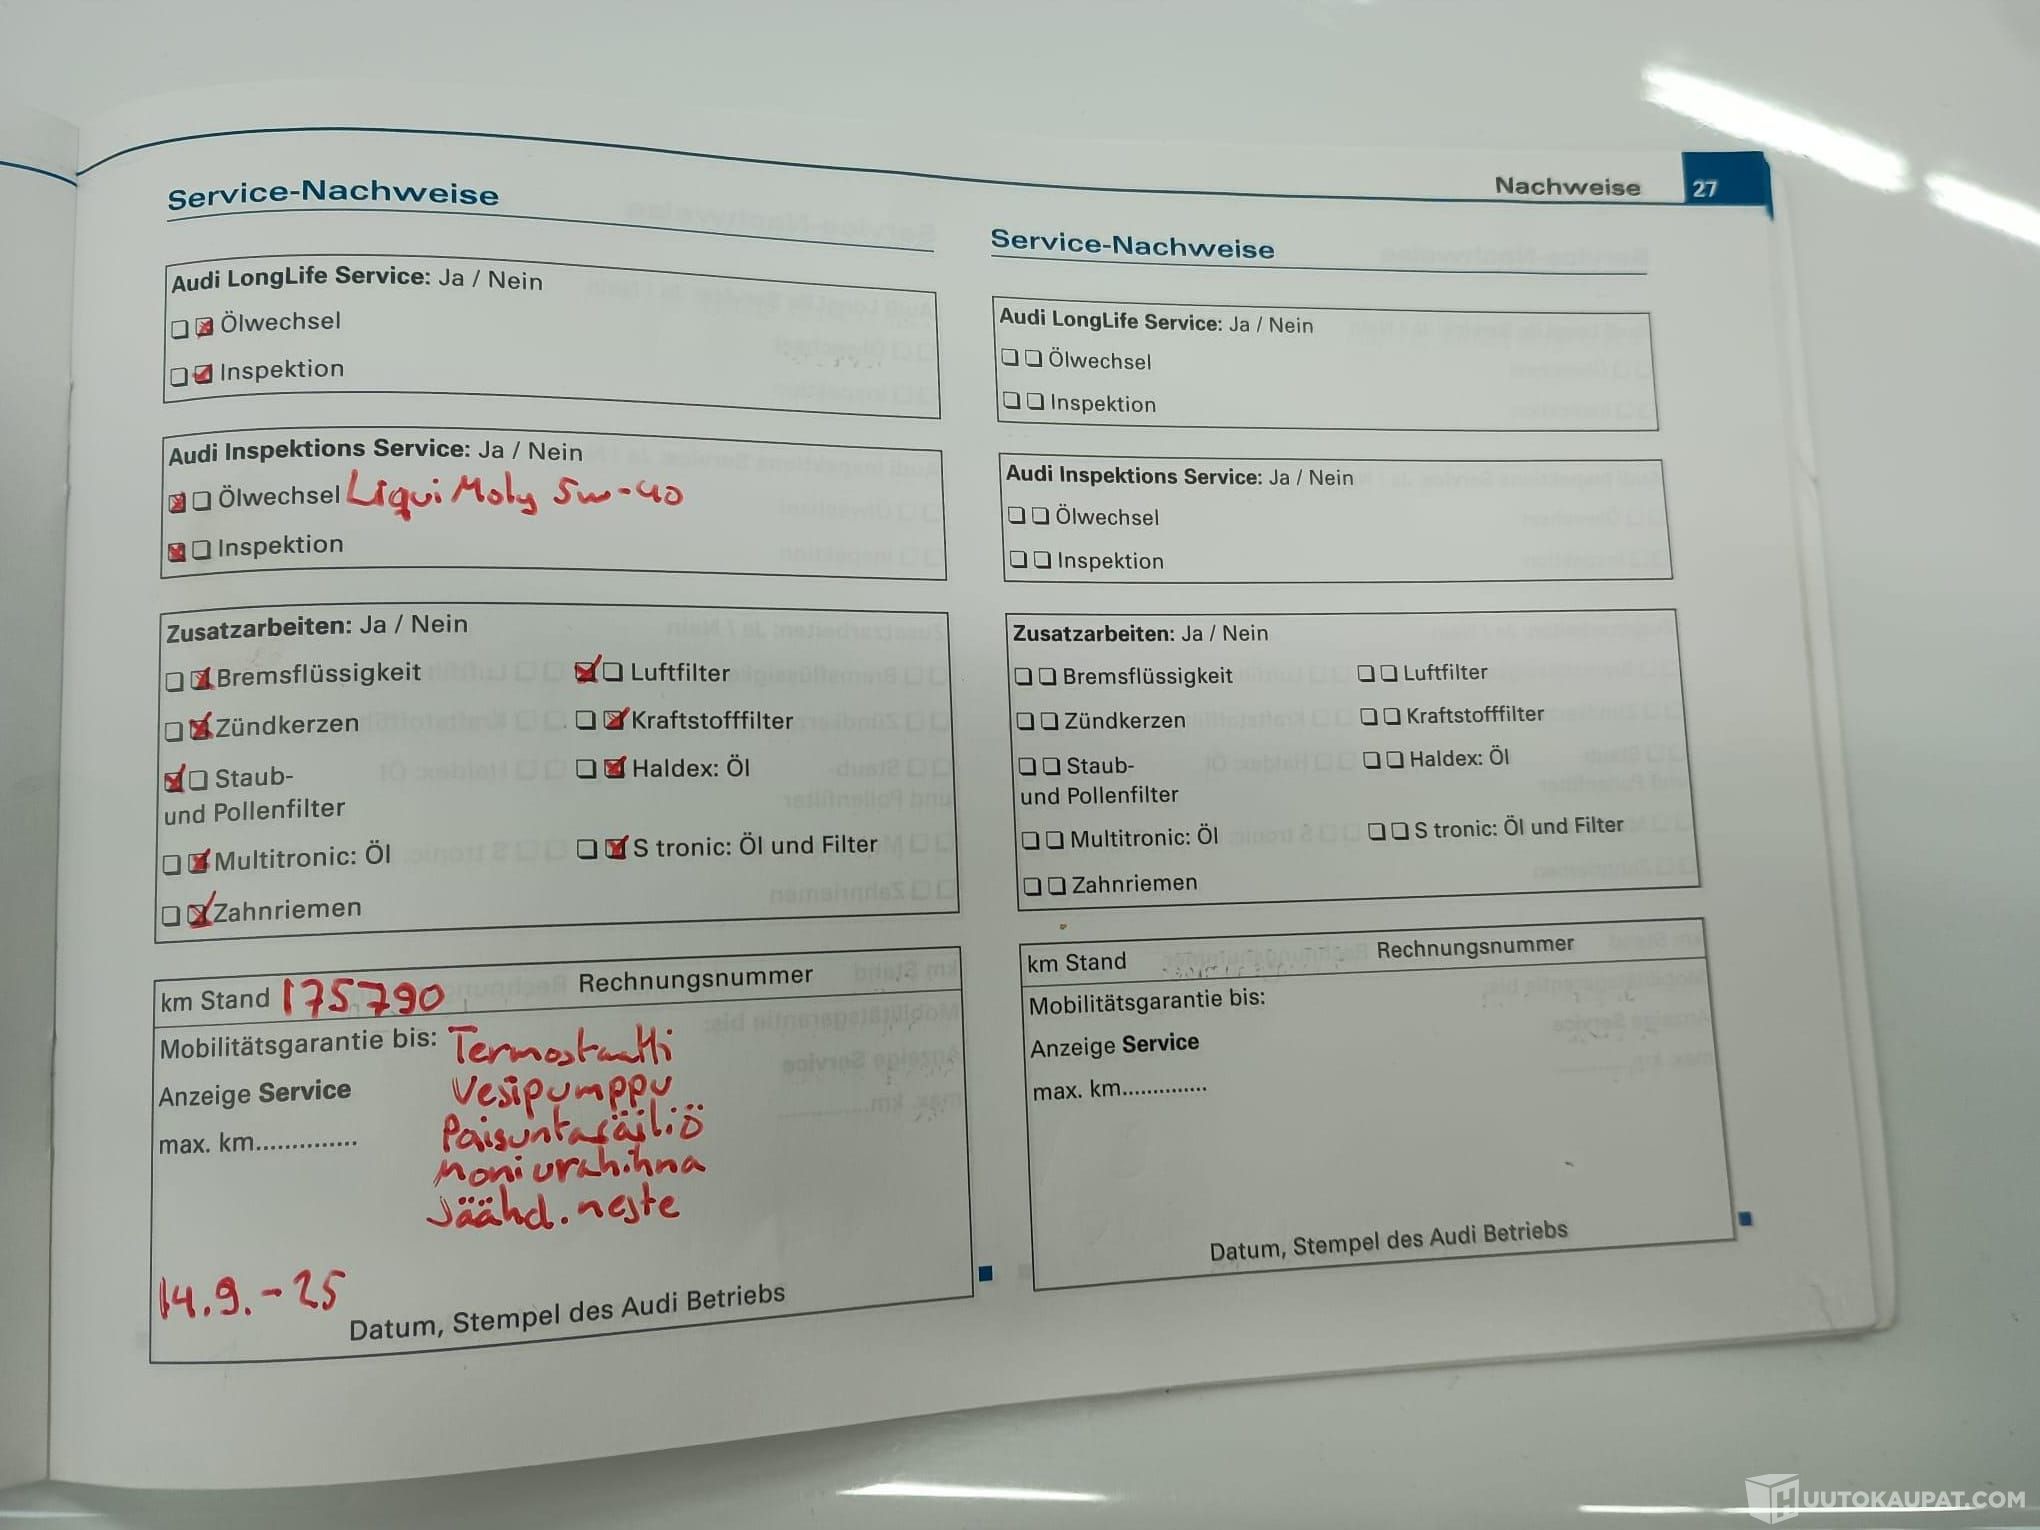 Nachweise 27
Service-Nachweise
Audi LongLife Service: Ja / Nein
Ölwechsel
Inspektion
Audi Inspektions Service: Ja / Nein
Ölwechsel Liqui Moly 5w-40
Inspektion
Zusatzarbeiten: Ja / Nein
Bremsflüssigkeit
Luftfilter
Zündkerzen
Kraftstofffilter
Staub-
und Pollenfilter
Haldex: Öl
Multitronic: Öl
S tronic: Öl und Filter
Zahnriemen
km Stand 175790 Rechnungsnummer
Mobilitätsgarantie bis: Termostaatti
Vesipumppu
Anzeige Service
Paisuntasäiliö
max. km..............
Moniurahihna
Jäähd. neste
14.9.-25
Datum, Stempel des Audi Betriebs
Service-Nachweise
Audi LongLife Service: Ja / Nein
Ölwechsel
Inspektion
Audi Inspektions Service: Ja / Nein
Ölwechsel
Inspektion
Zusatzarbeiten: Ja / Nein
Bremsflüssigkeit
Luftfilter
Zündkerzen
Kraftstofffilter
Staub-
und Pollenfilter
Haldex: Öl
Multitronic: Öl
S tronic: Öl und Filter
Zahnriemen
km Stand Rechnungsnummer
Mobilitätsgarantie bis:
Anzeige Service
max. km.............
Datum, Stempel des Audi Betriebs
HUUTOKAUPAT.COM